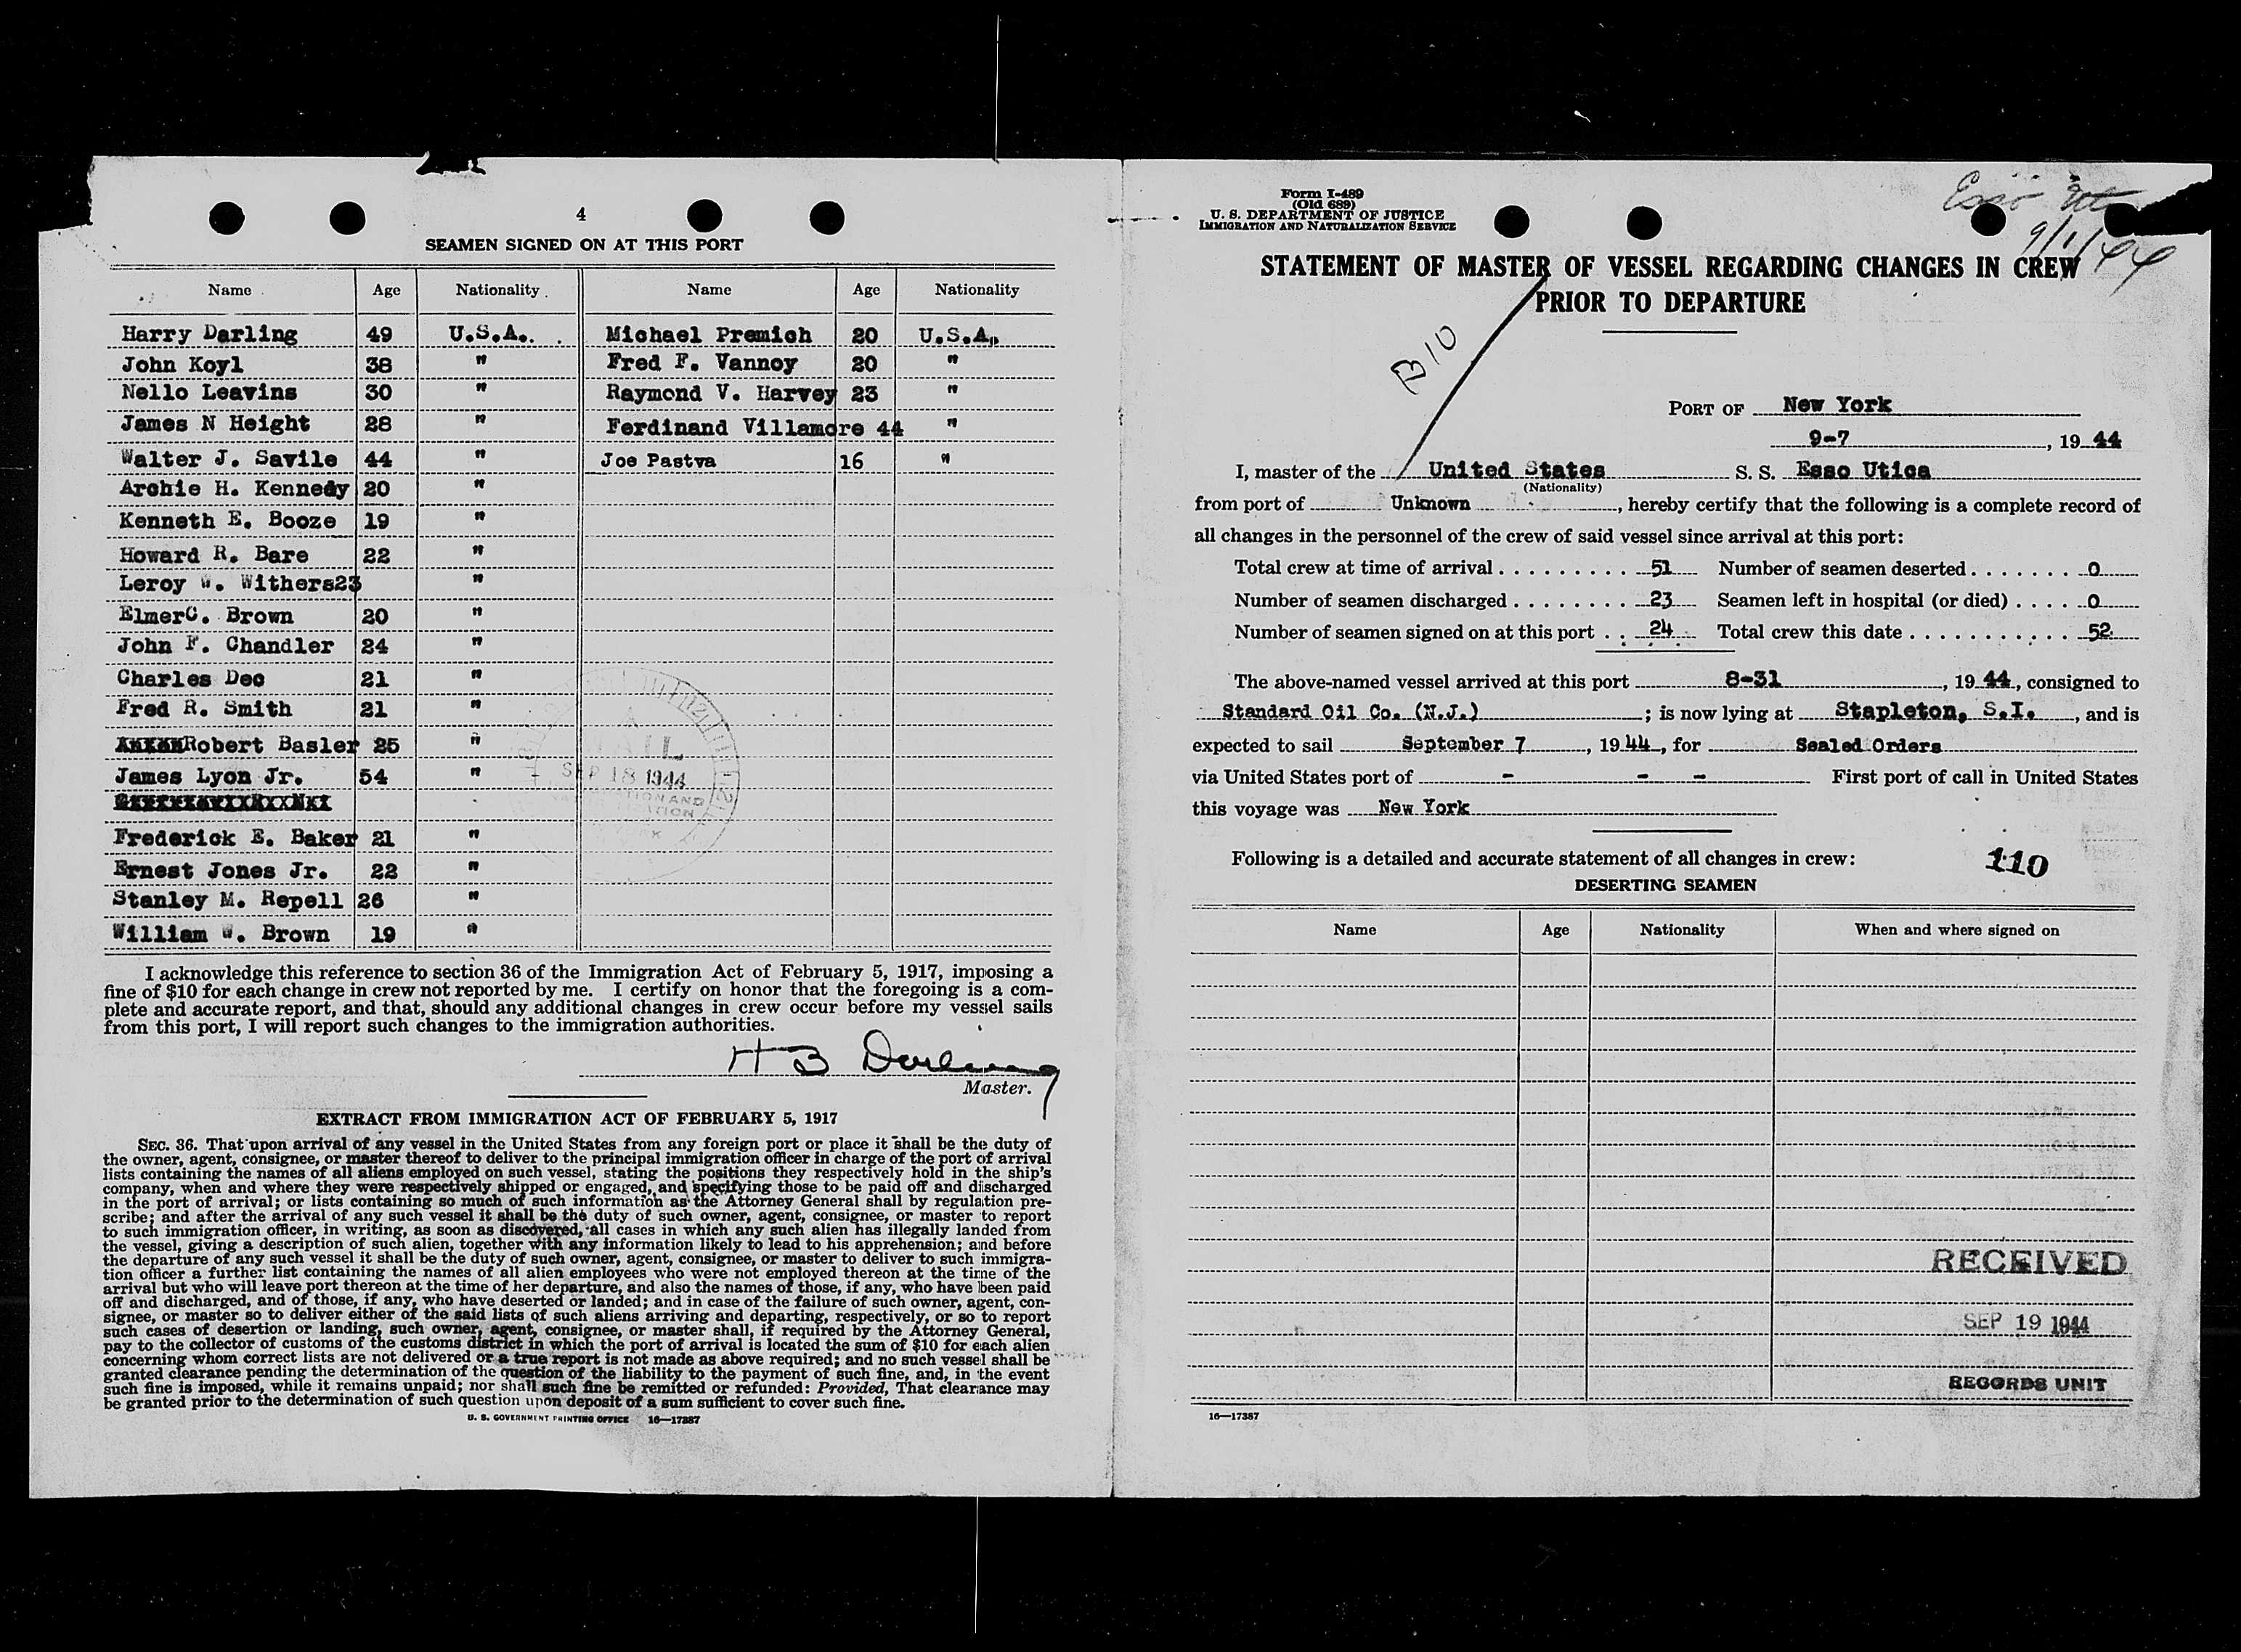 4
SEAMEN SIGNED ON AT THIS PORT
Name Age Nationality Name Age Nationality
Harry Darling 49 U.S.A. Michael Premich 20 U.S.A.
John Koyl 38 " Fred F. Vannoy 20 "
Nello Leavins 30 " Raymond V. Harvey 23 "
James N Height 28 " Ferdinand Villamore 44 "
Walter J. Savile 44 " Joe Pastva 16 "
Archie H. Kennedy 20 "
Kenneth E. Booze 19 "
Howard R. Bare 22 "
Leroy W. Withers 23 "
Elmer C. Brown 20 "
John F. Chandler 24 "
Charles Dec 21 "
Fred R. Smith 21 "
Robert Basler 25 "
James Lyon Jr. 54 "
Frederick E. Baker 21 "
Ernest Jones Jr. 22 "
Stanley M. Repell 26 "
William W. Brown 19 "
MAIL
SEP 18 1944
I acknowledge this reference to section 36 of the Immigration Act of February 5, 1917, imposing a
fine of $10 for each change in crew not reported by me. I certify on honor that the foregoing is a com-
plete and accurate report, and that, should any additional changes in crew occur before my vessel sails
from this port, I will report such changes to the immigration authorities.
H B Darling
Master.
EXTRACT FROM IMMIGRATION ACT OF FEBRUARY 5, 1917
SEC. 36. That upon arrival of any vessel in the United States from any foreign port or place it shall be the duty of
the owner, agent, consignee, or master thereof to deliver to the principal immigration officer in charge of the port of arrival
lists containing the names of all aliens employed on such vessel, stating the positions they respectively hold in the ship's
company, when and where they were respectively shipped or engaged, and specifying those to be paid off and discharged
in the port of arrival; or lists containing so much of such information as the Attorney General shall by regulation pre-
scribe; and after the arrival of any such vessel it shall be the duty of such owner, agent, consignee, or master to report
to such immigration officer, in writing, as soon as discovered, all cases in which any such alien has illegally landed from
the vessel, giving a description of such alien, together with any information likely to lead to his apprehension; and before
the departure of any such vessel it shall be the duty of such owner, agent, consignee, or master to deliver to such immigra-
tion officer a further list containing the names of all alien employees who were not employed thereon at the time of the
arrival but who will leave port thereon at the time of her departure, and also the names of those, if any, who have been paid
off and discharged, and of those, if any, who have deserted or landed; and in case of the failure of such owner, agent, con-
signee, or master so to deliver either of the said lists of such aliens arriving and departing, respectively, or so to report
such cases of desertion or landing, such owner, agent, consignee, or master shall, if required by the Attorney General,
pay to the collector of customs of the customs district in which the port of arrival is located the sum of $10 for each alien
concerning whom correct lists are not delivered or a true report is not made as above required; and no such vessel shall be
granted clearance pending the determination of the question of the liability to the payment of such fine, and, in the event
such fine is imposed, while it remains unpaid; nor shall such fine be remitted or refunded: Provided, That clearance may
be granted prior to the determination of such question upon deposit of a sum sufficient to cover such fine.
U. S. GOVERNMENT PRINTING OFFICE 16—17387
Form I-489
(Old 689)
U. S. DEPARTMENT OF JUSTICE
IMMIGRATION AND NATURALIZATION SERVICE
Esso
9/1/44
STATEMENT OF MASTER OF VESSEL REGARDING CHANGES IN CREW
PRIOR TO DEPARTURE
B10
PORT OF New York
9-7, 19 44
I, master of the United States S. S. Esso Utica
(Nationality)
from port of Unknown, hereby certify that the following is a complete record of
all changes in the personnel of the crew of said vessel since arrival at this port:
Total crew at time of arrival . . . . . . . . . . 51 Number of seamen deserted . . . . . . . 0
Number of seamen discharged . . . . . . . . 23 Seamen left in hospital (or died) . . . . 0
Number of seamen signed on at this port . . 24 Total crew this date . . . . . . . . . . . . 52
The above-named vessel arrived at this port 8-31, 19 44, consigned to
Standard Oil Co. (N.J.); is now lying at Stapleton, S.I., and is
expected to sail September 7, 19 44, for Sealed Orders
via United States port of - - - First port of call in United States
this voyage was New York
Following is a detailed and accurate statement of all changes in crew:
110
DESERTING SEAMEN
Name Age Nationality When and where signed on
RECEIVED
SEP 19 1944
RECORDS UNIT
16—17387